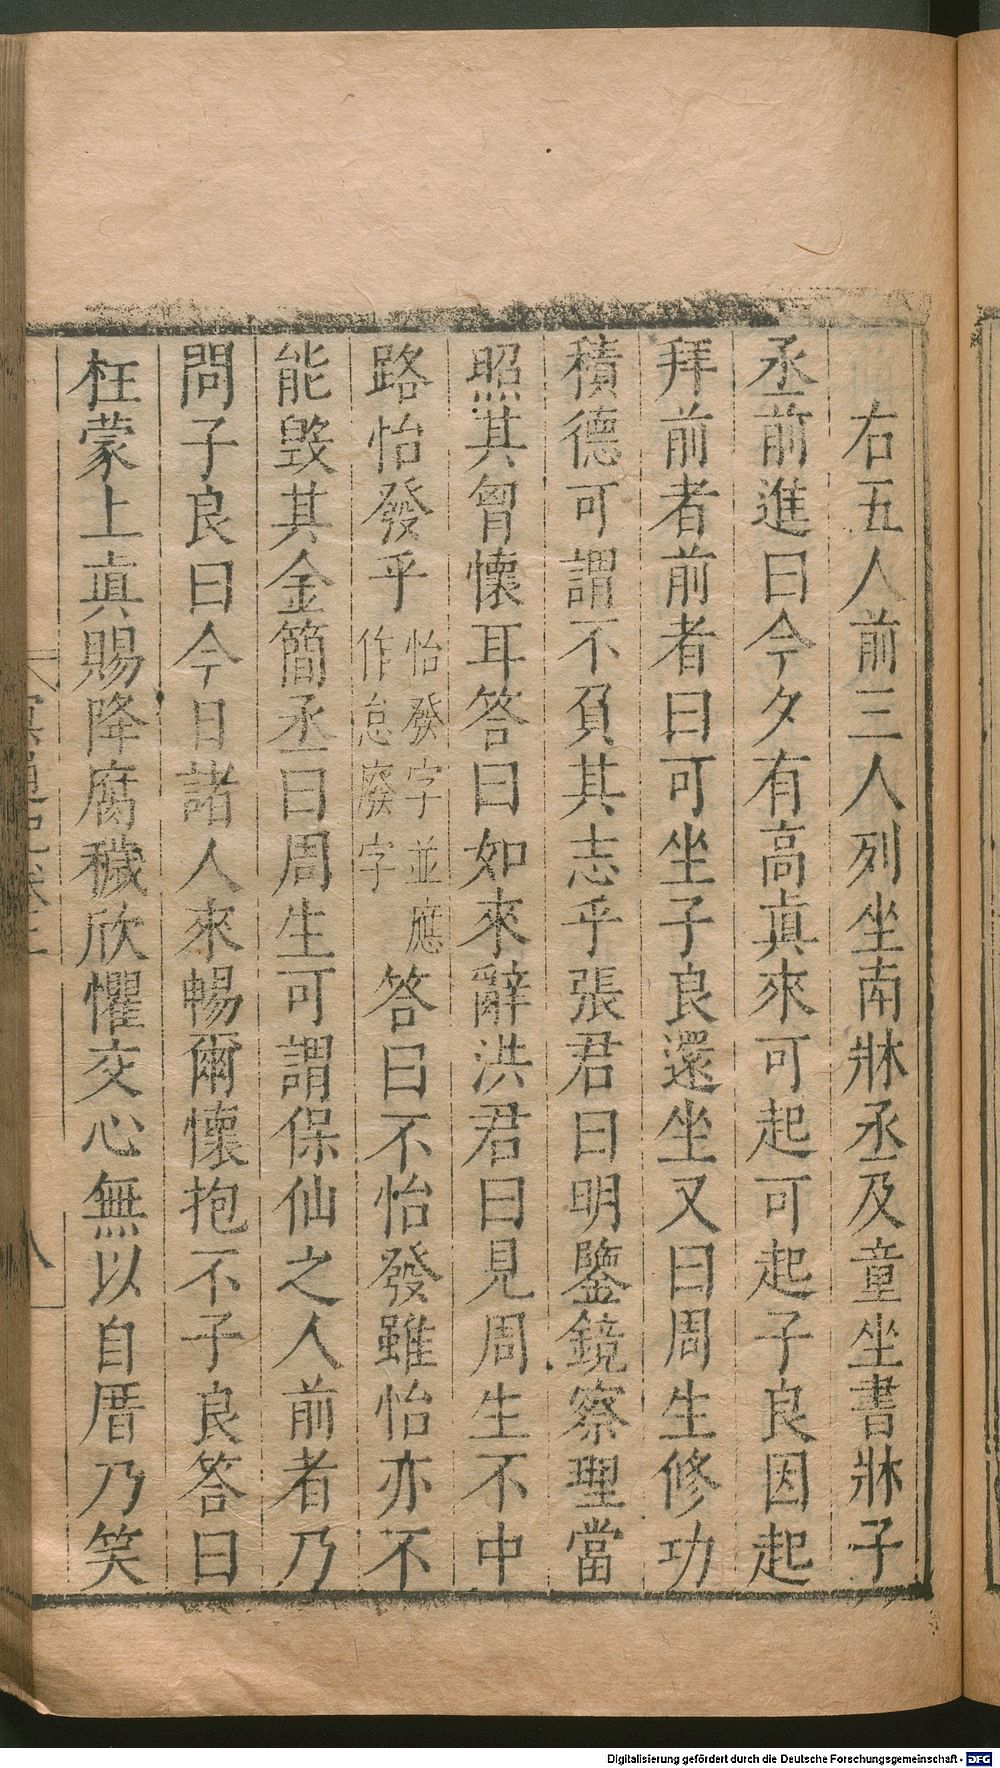 右五人前三人列坐南牀丞及童坐書牀子
丞前進曰今夕有高眞來可起可起子良因起
拜前者前者曰可坐子良還坐又曰周生修功
積德可謂不負其志乎張君曰明鑒鏡察理當
照其胷懷耳答曰如來辭洪君曰見周生不中
路怡發乎怡發字並應作怠廢字答曰不怡發雖怡亦不
能毀其金簡丞曰周生可謂保仙之人前者乃
問子良曰今日諸人來暢爾懷抱不子良答曰
枉蒙上眞賜降腐穢欣懼交心無以自厝乃笑
八
Digitalisierung gefördert durch die Deutsche Forschungsgemeinschaft - DFG